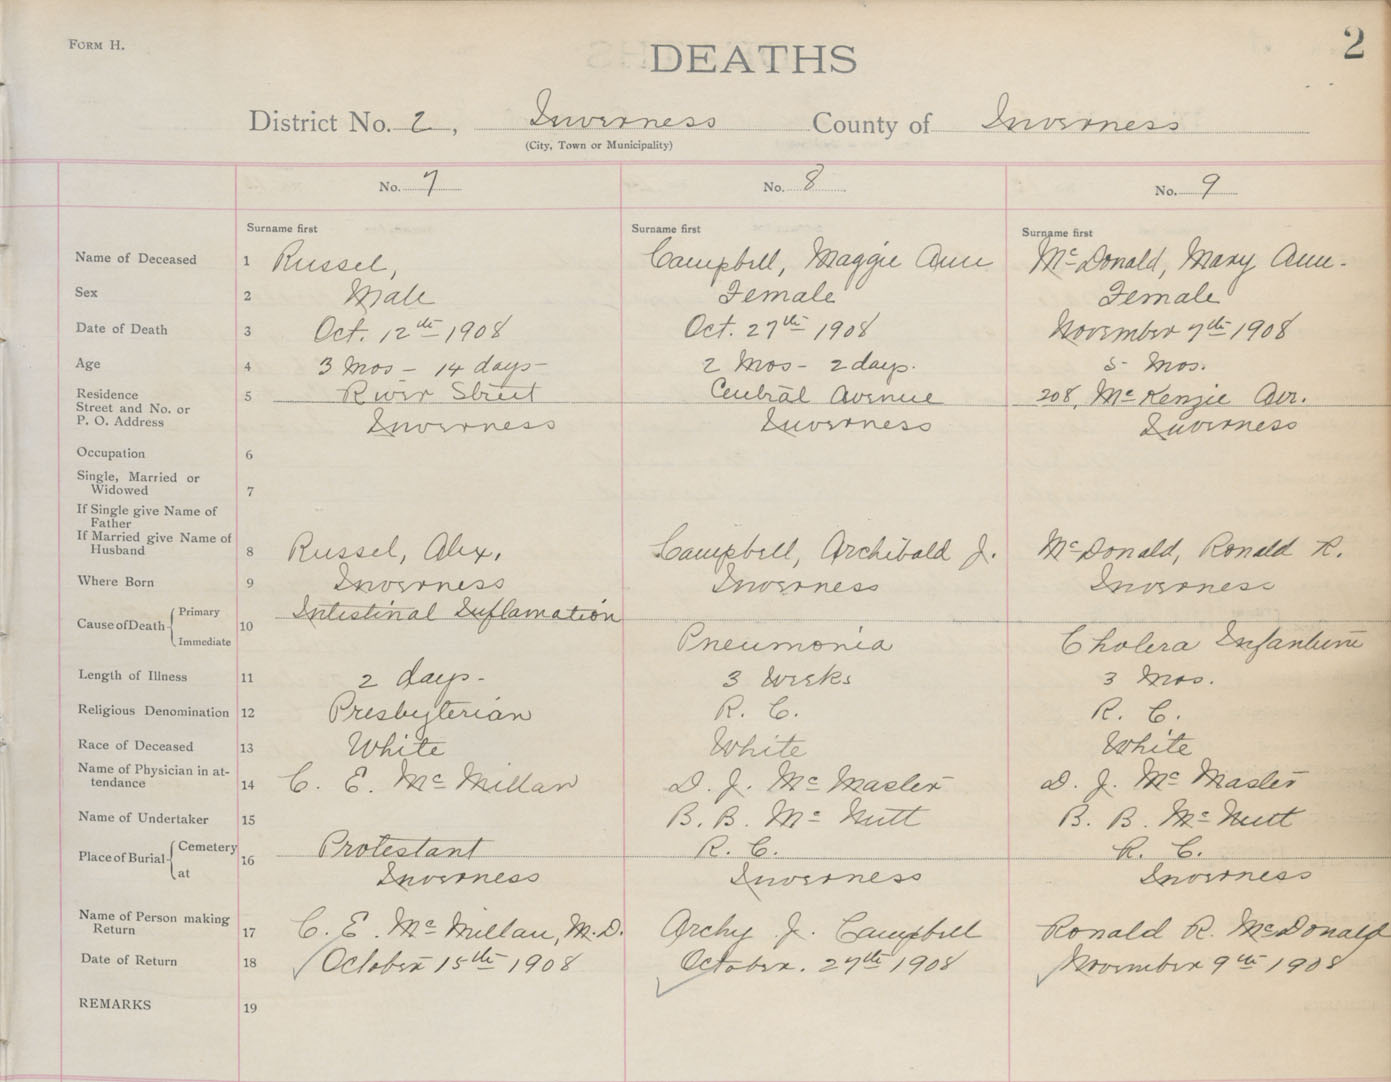 FORM H.
2
DEATHS
District No. 2, Inverness County of Inverness
(City, Town or Municipality)
No. 7 No. 8 No. 9
Surname first Surname first Surname first
Name of Deceased 1 Russel, Campbell, Maggie Ann McDonald, Mary Ann-
Sex 2 Male Female Female
Date of Death 3 Oct. 12th 1908 Oct. 27th 1908 November 7th 1908
Age 4 3 Mos - 14 days- 2 Mos - 2 days. 5 Mos.
Residence
Street and No. or 5 River Street Central Avenue 208, McKenzie Av.
P. O. Address Inverness Inverness Inverness
Occupation 6
Single, Married or
Widowed 7
If Single give Name of
Father
If Married give Name of
Husband 8 Russel, Alex. Campbell, Archibald J. McDonald, Ronald R.
Where Born 9 Inverness Inverness Inverness
Cause of Death Primary 10 Intestinal Inflamation
Immediate Pneumonia Cholera Infantum
Length of Illness 11 2 days- 3 Weeks 3 Mos.
Religious Denomination 12 Presbyterian R. C. R. C.
Race of Deceased 13 White White White
Name of Physician in at-
tendance 14 C. E. McMillan D. J. McMaster D. J. McMaster
Name of Undertaker 15 B. B. McNutt B. B. McNutt
Place of Burial Cemetery 16 Protestant R. C. R. C.
at Inverness Inverness Inverness
Name of Person making
Return 17 C. E. McMillan, M.D. Archy J. Campbell Ronald R. McDonald
Date of Return 18 October 15th 1908 October. 27th 1908 November 9th 1908
REMARKS 19